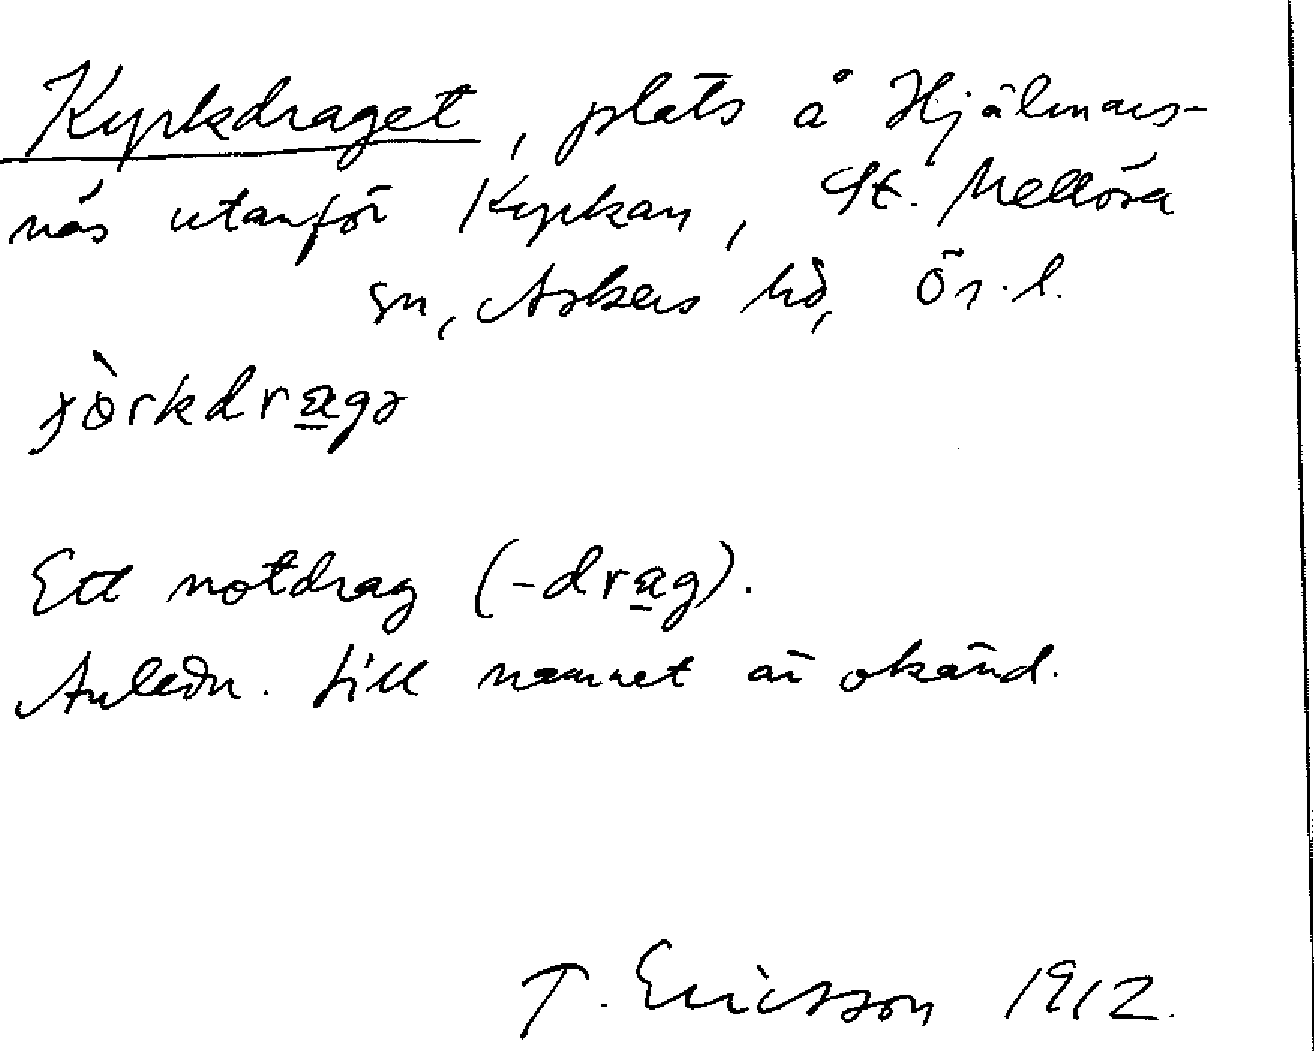 Kyrkdraget, plats å Hjälmars-
näs utanför Kyrkan, St. Mellösa
sn, Askers hd, Ör. l.
Ett notdrag (-drag).
Anledn. till namnet är okänd.
T. Ericsson 1912.